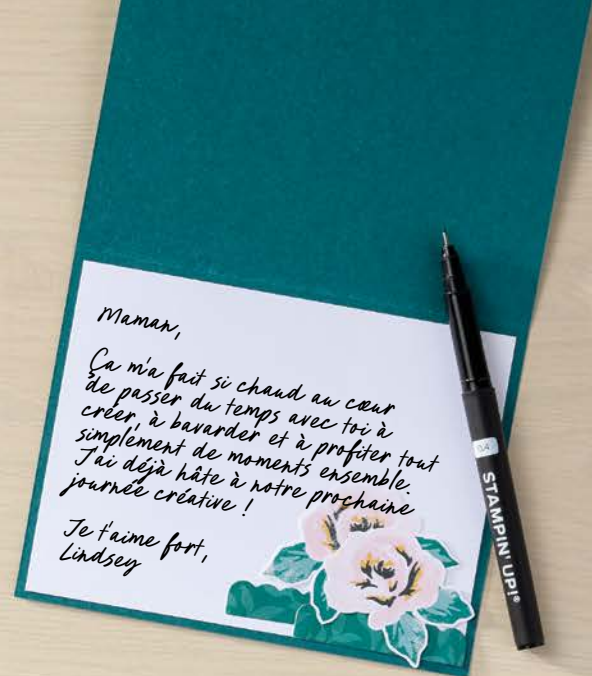 Maman,
Ça m'a fait si chaud au cœur
de passer du temps avec toi à
créer, à bavarder et à profiter tout
simplement de moments ensemble.
J'ai déjà hâte à notre prochaine
journée créative !
Je t'aime fort,
Lindsey
0.4
STAMPIN' UP!®